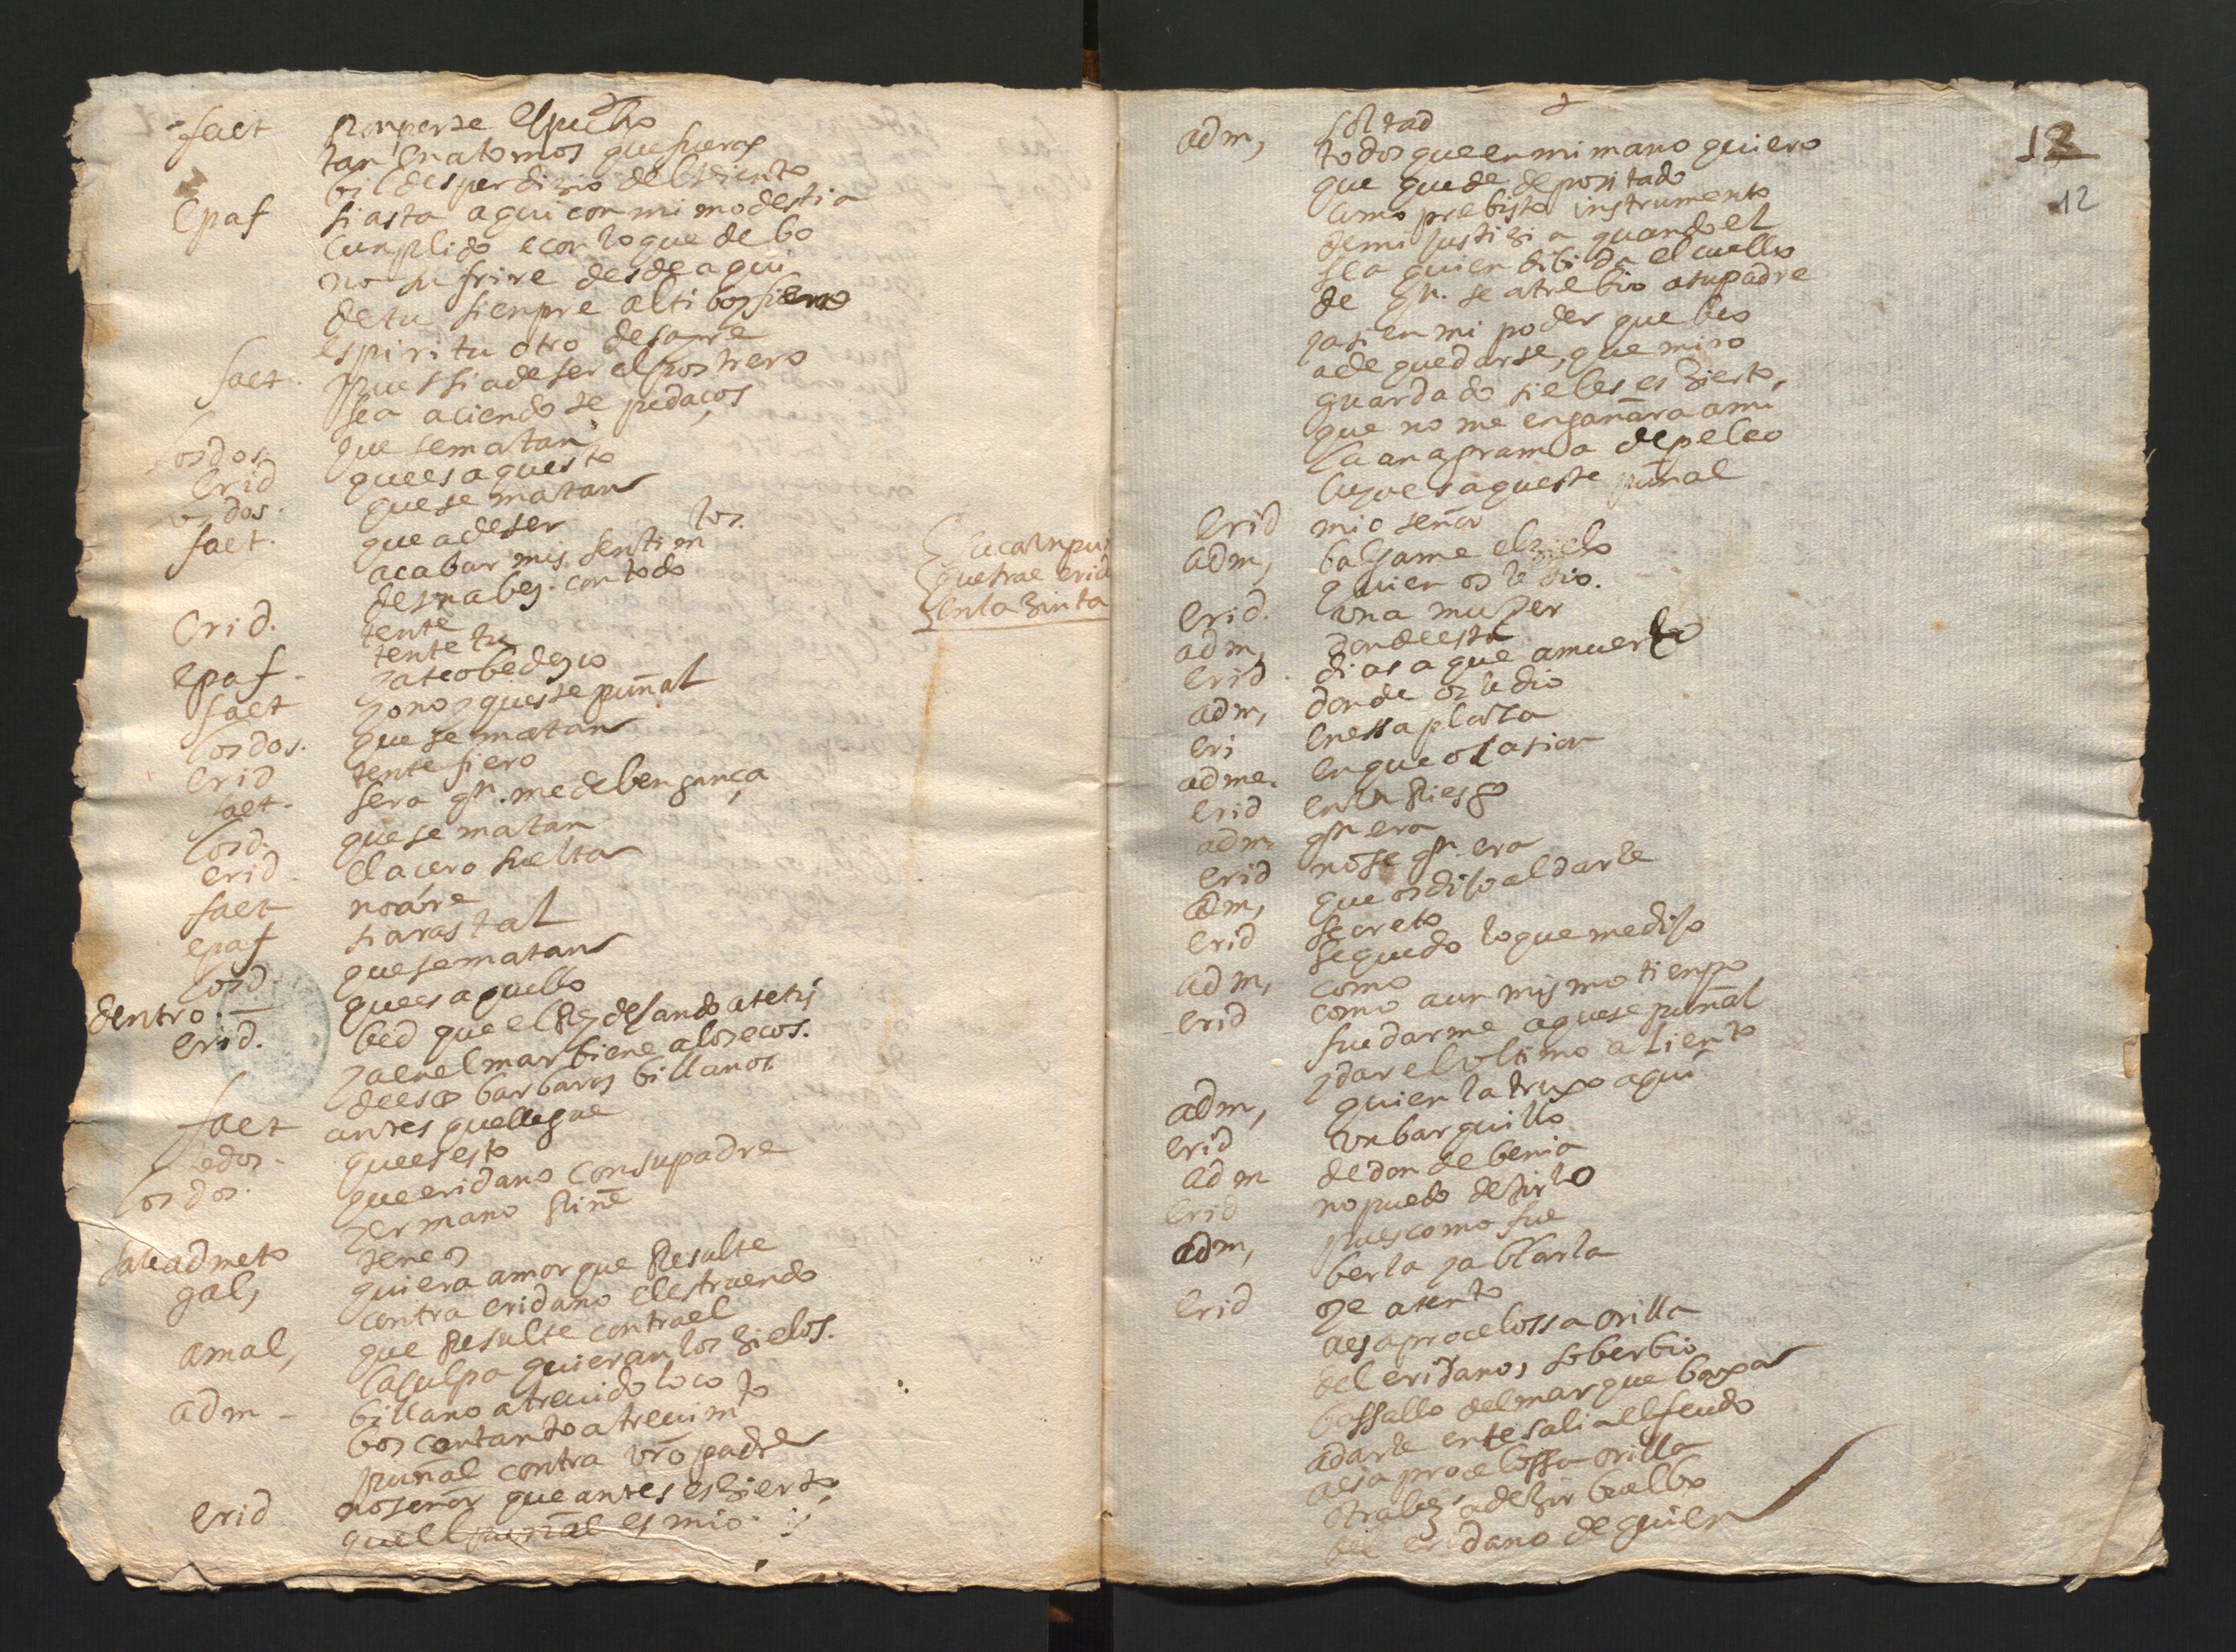 faet Romperse el pecho
tan en atomos que fueras
bil desperdizio del biento
epaf si asta aqui con mi modestia
cunplido e con lo que debo
no sufrire desde aqui
de tu sienpre altibo fiero
espiritu otro desayre
faet. pues si a de ser el postrero
sea aciendose pedaços
los dos que se matan
erid que es aquesto
los dos. que se matan
faet. que a de ser
acabar mis sentimtos.
de una bez. con todo
{ saca un pu
{ que trae erid
{ en la zinta
erid. tente
tente tu
epaf - ya te obedezco
faet yo no y queste puñal
los dos. que se matan
erid tente fiero
faet. sera qn. me de bengança
los d. que se matan
erid el acero suelta
faet no are
epaf si aras tal
los d. que se matan
dentro. - que es aquello
erid. bed que el Rey dejando a tetis
ya en el mar biene a los ecos.
de esos barbaros billanos.
faet antes que llegue
edos - que es esto
los dos. que eridano con su padre
y ermano Riñe
sale admeto teneos
gal, quiera amor que Resulte
contra eridano el estruendo
amal, que Resulte contra el
la culpa quieran los zielos.
adm - billano atreuido loco
bos con tanto atreuimto
puñal contra vro padre
erid no señor que antes es zierto
que el puñal es mio
12
12
adm, soltad
todos que en mi mano quiero
que quede depositado
como prebisto instrumento
de mi justizia quando el
sea quien dibida el cuello
de qn. se atrebio a su padre
y asi en mi poder que beo
a de quedarse, que miro
guardado si el es es zierto,
que no me engañara a mi
la anagrama de peleo
cuyo es aqueste puñal
erid mio señor
adm, balgame el zielo
quien os le dio.
erid. una muger
adm, donde esta
erid. dias a que a muerto
adm, donde os le dio
eri en essa plaza
adme. en que ocasion
erid en un Riesgo
adm. qn era
erid no se qn era
adm, que os dijo al darle
erid secreto
adm, se quedo lo que me dijo
como
erid como a un mismo tienpo
fue darme aquese puñal
y dar el ultimo aliento
adm, quien la trujo aqui
erid un barquillo
adm de donde benia
erid no puedo dezirlo
adm, pues como fue
berla y ablarla
erid oye atento
a esa procelossa orilla
del eridano, soberbio
bassallo del mar que baxa
a darle en te sali a el feudo
a esa procelossa orilla
otra bez a dezir buelbo
del eridano de quien